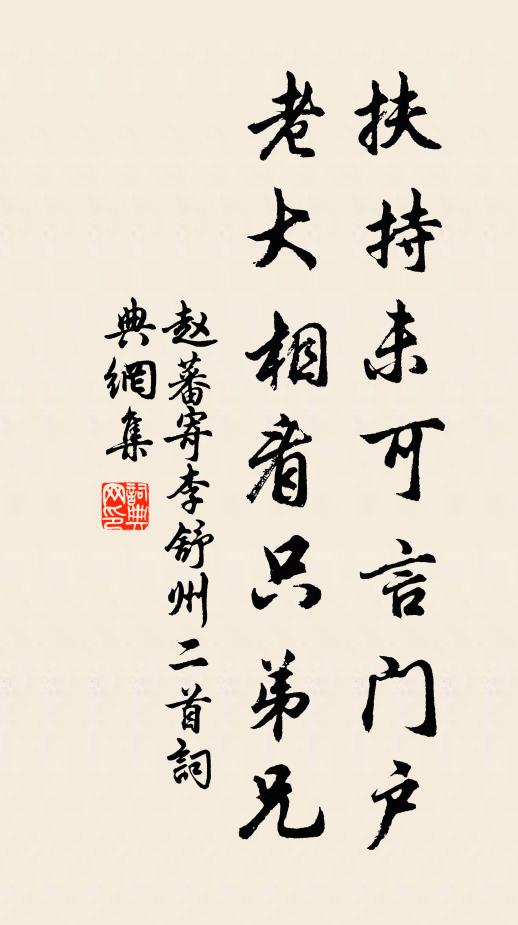 扶持未可言门户
老大相看只弟兄
赵蕃寄李舒州二首詞
典網集
詞典网印